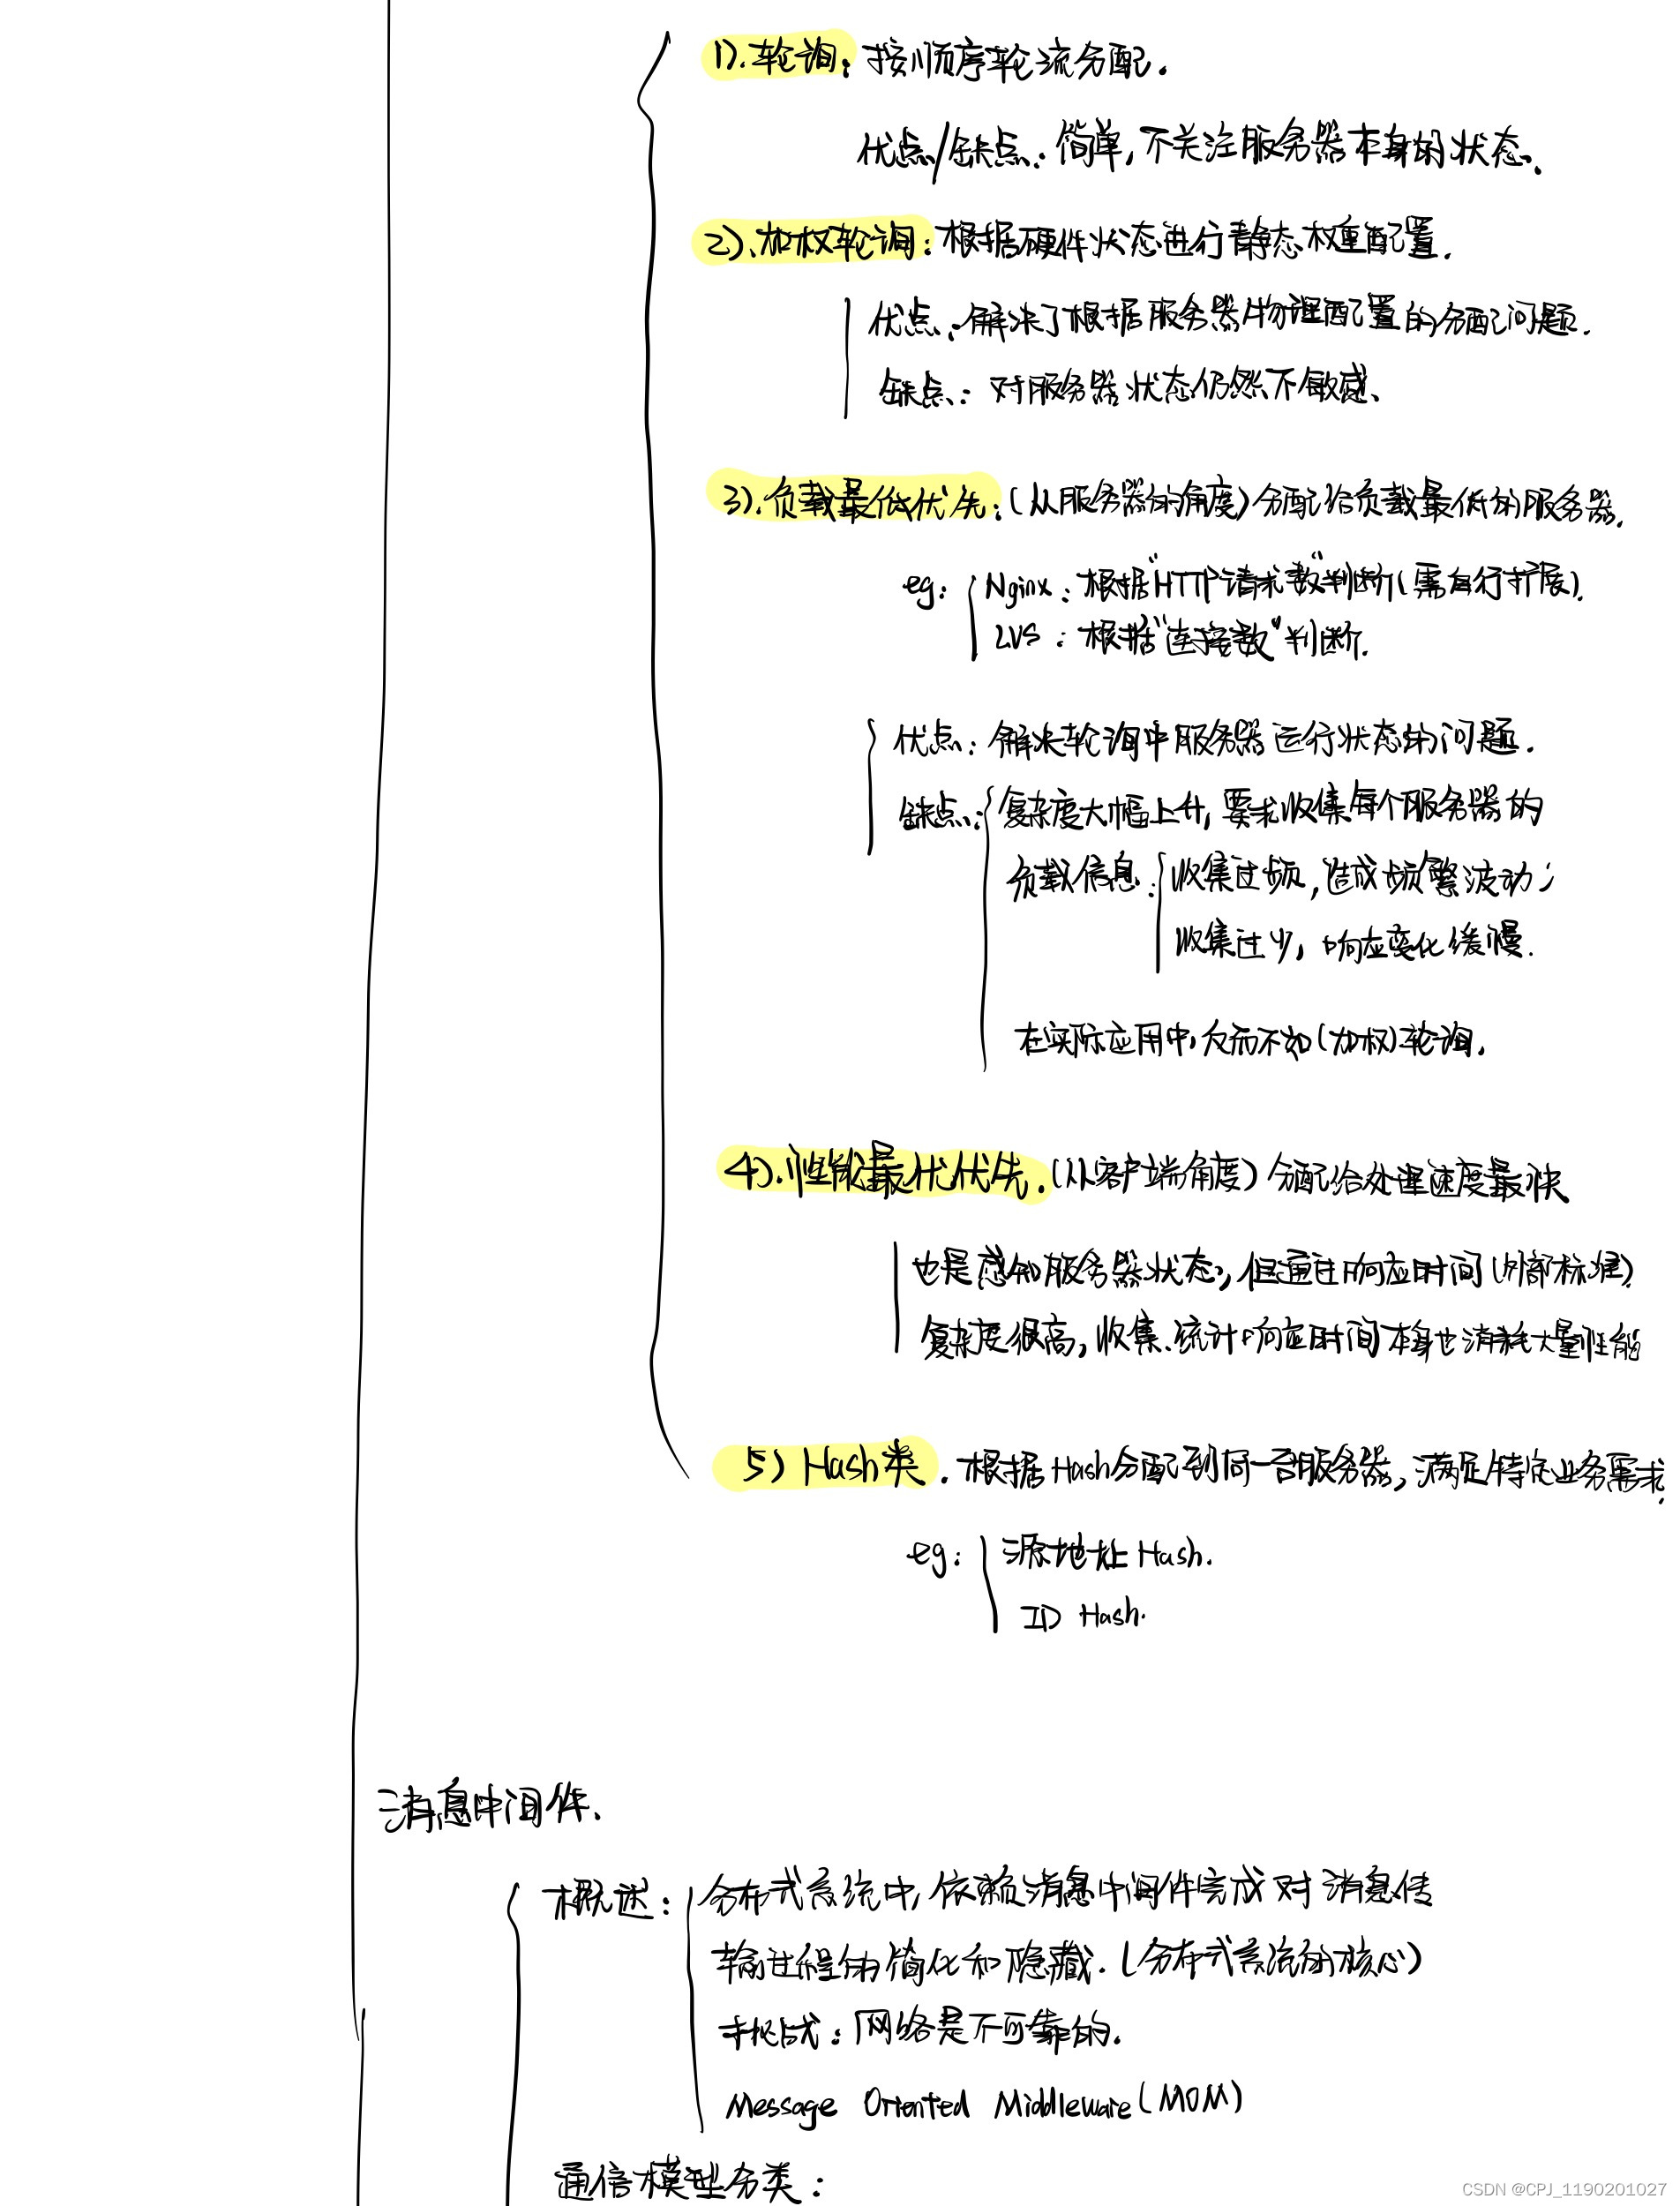 1).轮询:按顺序轮流分配.
优点/缺点:简单,不关注服务器本身的状态.
2).加权轮询:根据硬件状态进行静态权重配置.
优点:解决了根据服务器物理配置的分配问题.
缺点:对服务器状态仍然不敏感.
3).负载最低优先:(从服务器的角度)分配给负载最低的服务器.
eg: Nginx:根据"HTTP请求数"判断(需自行扩展).
LVS:根据"连接数"判断.
优点:解决轮询中服务器运行状态的问题.
缺点:复杂度大幅上升,要求收集每个服务器的
负载信息:收集过频,造成频繁波动;
收集过少,响应变化缓慢.
在实际应用中,反而不如(加权)轮询.
4).性能最优优先.(从客户端角度)分配给处理速度最快
也是感知服务器状态,但通过响应时间(外部标准)
复杂度很高,收集.统计响应时间本身也消耗大量性能
5) Hash类.根据Hash分配到同一台服务器,满足特定业务需求.
eg: 源地址Hash.
ID Hash.
消息中间件.
概述:分布式系统中,依赖消息中间件完成对消息传
输过程的简化和隐藏.(分布式系统的核心)
挑战:网络是不可靠的.
Message Oriented Middleware(MOM)
通信模型分类:
CSDN @CPJ_1190201027